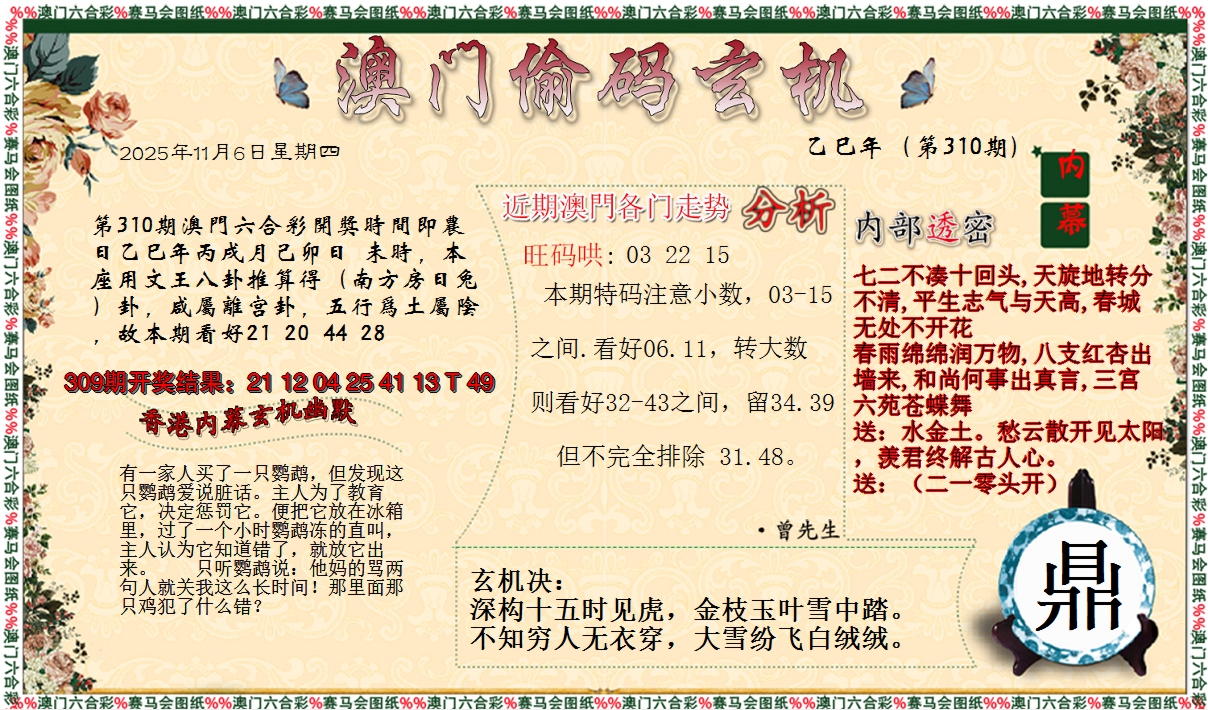 %%澳门六合彩%赛马会图纸%%澳门六合彩%赛马会图纸%%澳门六合彩%赛马会图纸%%澳门六合彩%赛马会图纸%%澳门六合彩%赛马会图纸%%澳门六合彩%赛马会图纸%%
澳门偷码玄机
2025年11月6日星期四
乙巳年（第310期）
内幕
第310期澳門六合彩開獎時間即農
日乙巳年丙戌月己卯日 未時，本
座用文王八卦推算得（南方房日兔
）卦，咸屬離宫卦，五行爲土屬陰
，故本期看好21 20 44 28
309期开奖结果：21 12 04 25 41 13 T 49
香港内幕玄机幽默
有一家人买了一只鹦鹉，但发现这
只鹦鹉爱说脏话。主人为了教育
它，决定惩罚它。便把它放在冰箱
里，过了一个小时鹦鹉冻的直叫，
主人认为它知道错了，就放它出
来。 只听鹦鹉说：他妈的骂两
句人就关我这么长时间！那里面那
只鸡犯了什么错？
近期澳門各门走势 分析
旺码哄: 03 22 15
本期特码注意小数，03-15
之间.看好06.11，转大数
则看好32-43之间，留34.39
但不完全排除 31.48。
·曾先生
内部透密
七二不凑十回头,天旋地转分
不清,平生志气与天高,春城
无处不开花
春雨绵绵润万物,八支红杏出
墙来,和尚何事出真言,三宫
六苑苍蝶舞
送：水金土。愁云散开见太阳
，羡君终解古人心。
送：（二一零头开）
玄机决：
深构十五时见虎，金枝玉叶雪中踏。
不知穷人无衣穿，大雪纷飞白绒绒。
鼎
%%澳门六合彩%赛马会图纸%%澳门六合彩%赛马会图纸%%澳门六合彩%赛马会图纸%%澳门六合彩%赛马会图纸%%澳门六合彩%赛马会图纸%%澳门六合彩%赛马会图纸%%